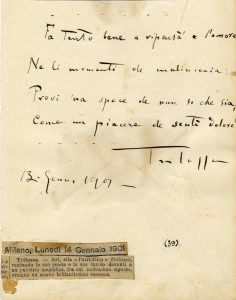 Fa tanto bene a ripensà a l'amore
Ne li momenti de malinconia:
Provi 'na spece de nun so che sia,
Come un piacere de sentì dolore
Trilussa
13 Genn° 1901
(39)
Milano, Lunedì 14 Gennaio 1901
Trilussa. — Ieri, alla « Patriottica » Trilussa,
recitando le sue poesie e le sue favole davanti a
un pubblico magnifico, fra cui moltissime signore,
ottenne un nuovo brillantissimo successo.